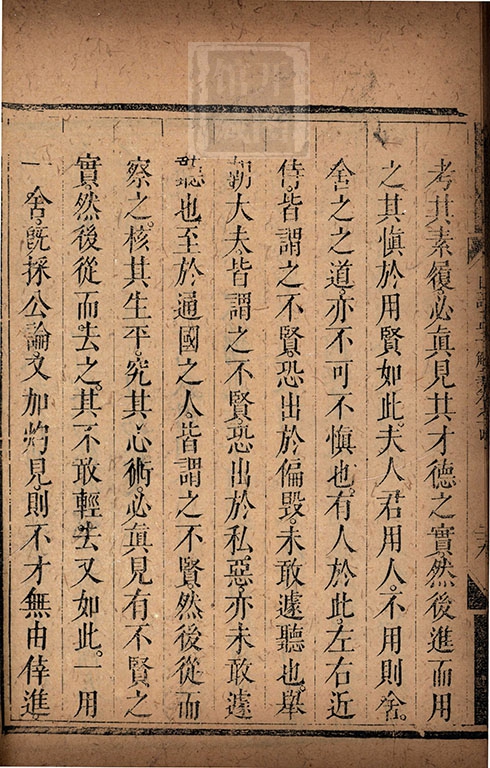 考其素履。必眞見其才德之實。然後進而用
之。其愼於用賢如此。夫人君用人。不用則舍。
舍之之道。亦不可不愼也。有人於此。左右近
侍。皆謂之不賢。恐出於偏毁。未敢遽聽也。舉
朝大夫。皆謂之不賢。恐出於私惡。亦未敢遽
聽也。至於通國之人。皆謂之不賢。然後從而
察之。核其生平。究其心術。必眞見有不賢之
實。然後從而去之。其不敢輕去又如此。一用
一舍。旣採公論。又加灼見。則不才無由倖進。